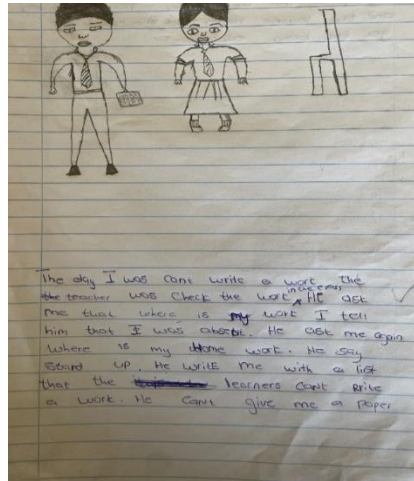 The day I was cant write a work the
the teacher was check the work in the class HE ask
me that where is my work I tell
him that I was absent. He ask me again
where is my Home work. He say
stand up. He write me with a list
that the learners cant write
a work. He cant give me a paper